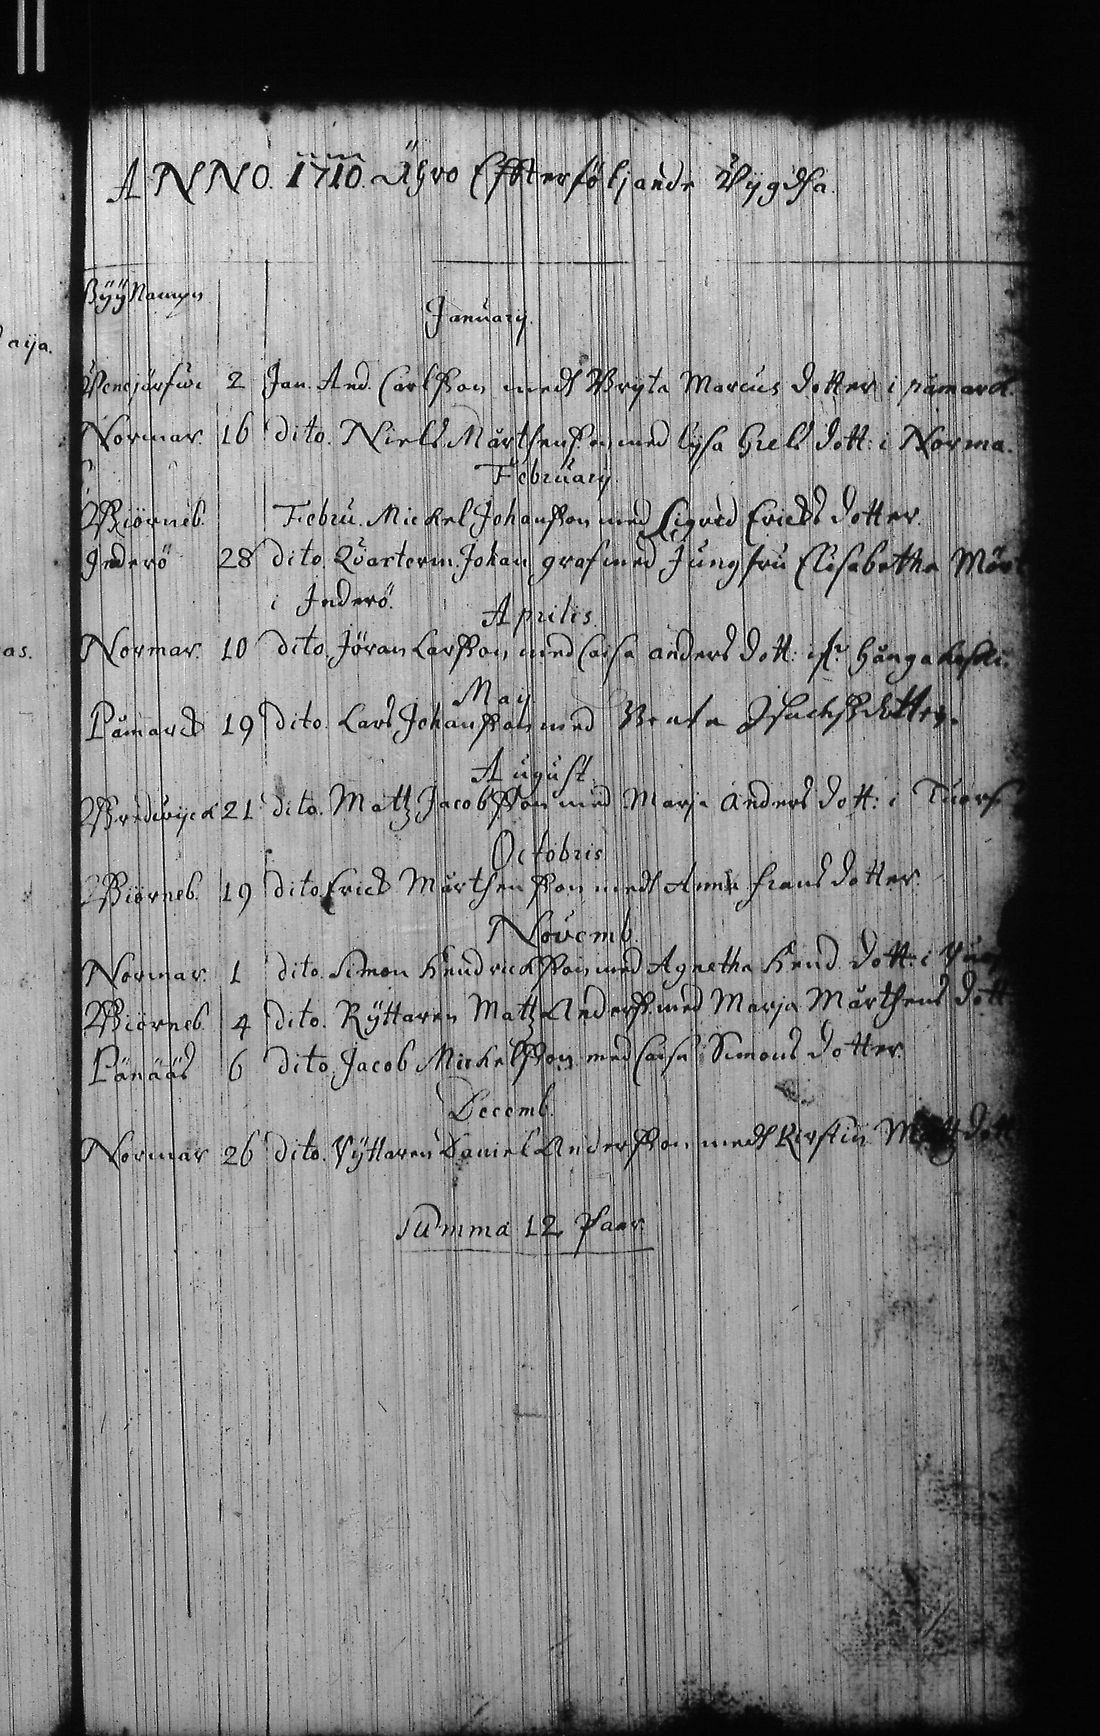 aija.
as.
ANNO. 1710. Ähro Effterföljande Wijgda.
Bÿÿ Namn
January.
2 Jan. And. Carlsson medh Bryta Marcus dotter i påmarck.
Normar. 16 dito. Niels Mårthensson med Lysa Grels dott: i Norma.
February.
Biörneb. Febru. Mickel Johansson med Sigrid Ericks dotter.
Inderö 28 dito. Qvarterm. Johan graf med Jungfru Elisabetha Mårt
i Inderö.
Aprilis.
Normar. 10 dito. Jöran Larsson med Caisa anders dott:
May
Påmarck 19 dito. Lars Johansson med Isachsdotter.
August.
Bredwijck 21 dito. Matz Jacobsson med Marja anders dott: i
Octobris
Biörneb. 19 dito. Erick Mårthensson medh Anna frans dotter.
Novemb.
Normar. 1 dito. Simon Hendricksson med Agnetha Hend. dott: i
Biörneb. 4 dito. Rÿttaren Matz Anderss. med Marja Mårthens dott
Pånääs 6 dito. Jacob Mickelsson med Caisa Simons dotter.
Decemb.
Normar 26 dito. Rÿttaren Daniel Andersson medh Kirstin Matz dott
Summa 12 Paar.